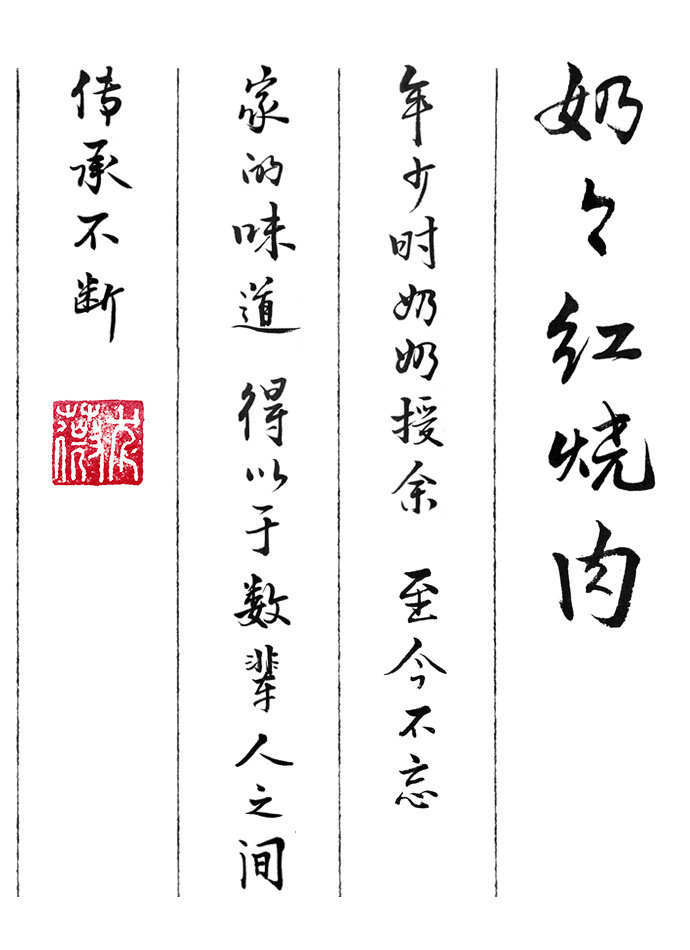 奶々红烧肉
年少时奶奶授余 至今不忘
家的味道 得以于数辈人之间
传承不断